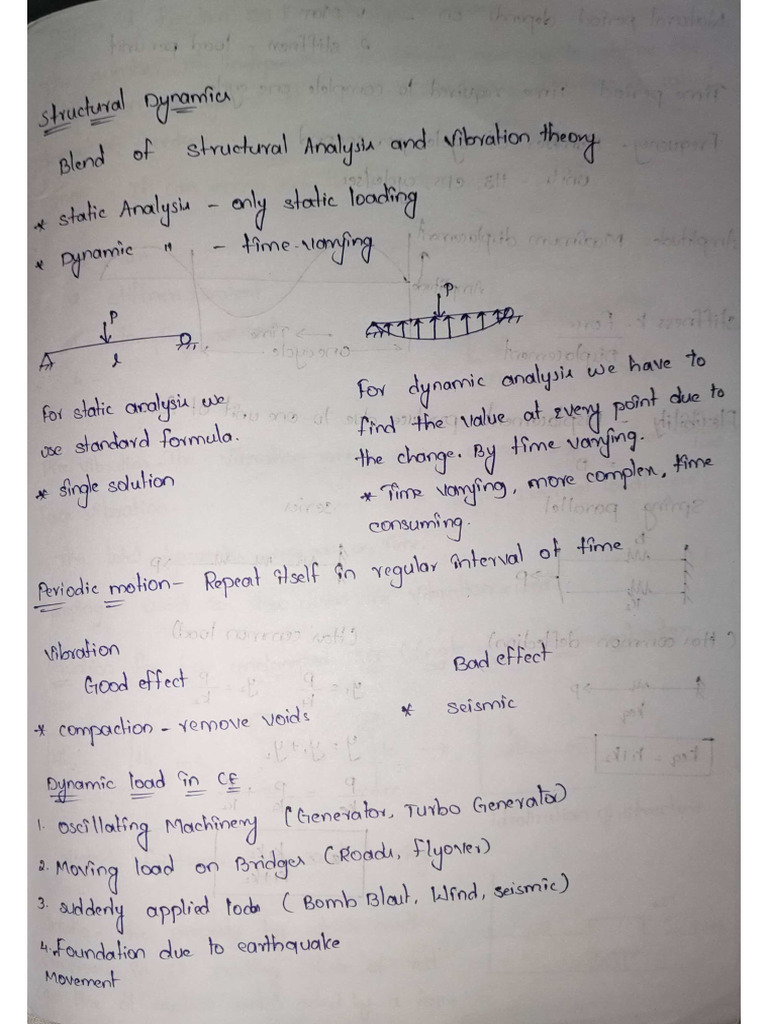 Structural Dynamics
Blend of structural Analysis and Vibration theory
* static Analysis - only static loading
* Dynamic " - time-varying
P
l
P
For static analysis we
use standard formula.
* single solution
For dynamic analysis we have to
find the value at every point due to
the change. By time varying.
* Time varying, more complex, time
consuming.
Periodic motion- Repeat itself in regular interval of time
Vibration
Good effect
Bad effect
* compaction - remove voids
* seismic
Dynamic load in CE
1. oscillating Machinery (Generator, Turbo Generator)
2. Moving load on Bridges (Roads, flyover)
3. suddenly applied (Bomb Blast, Wind, seismic)
4. Foundation due to earthquake
Movement